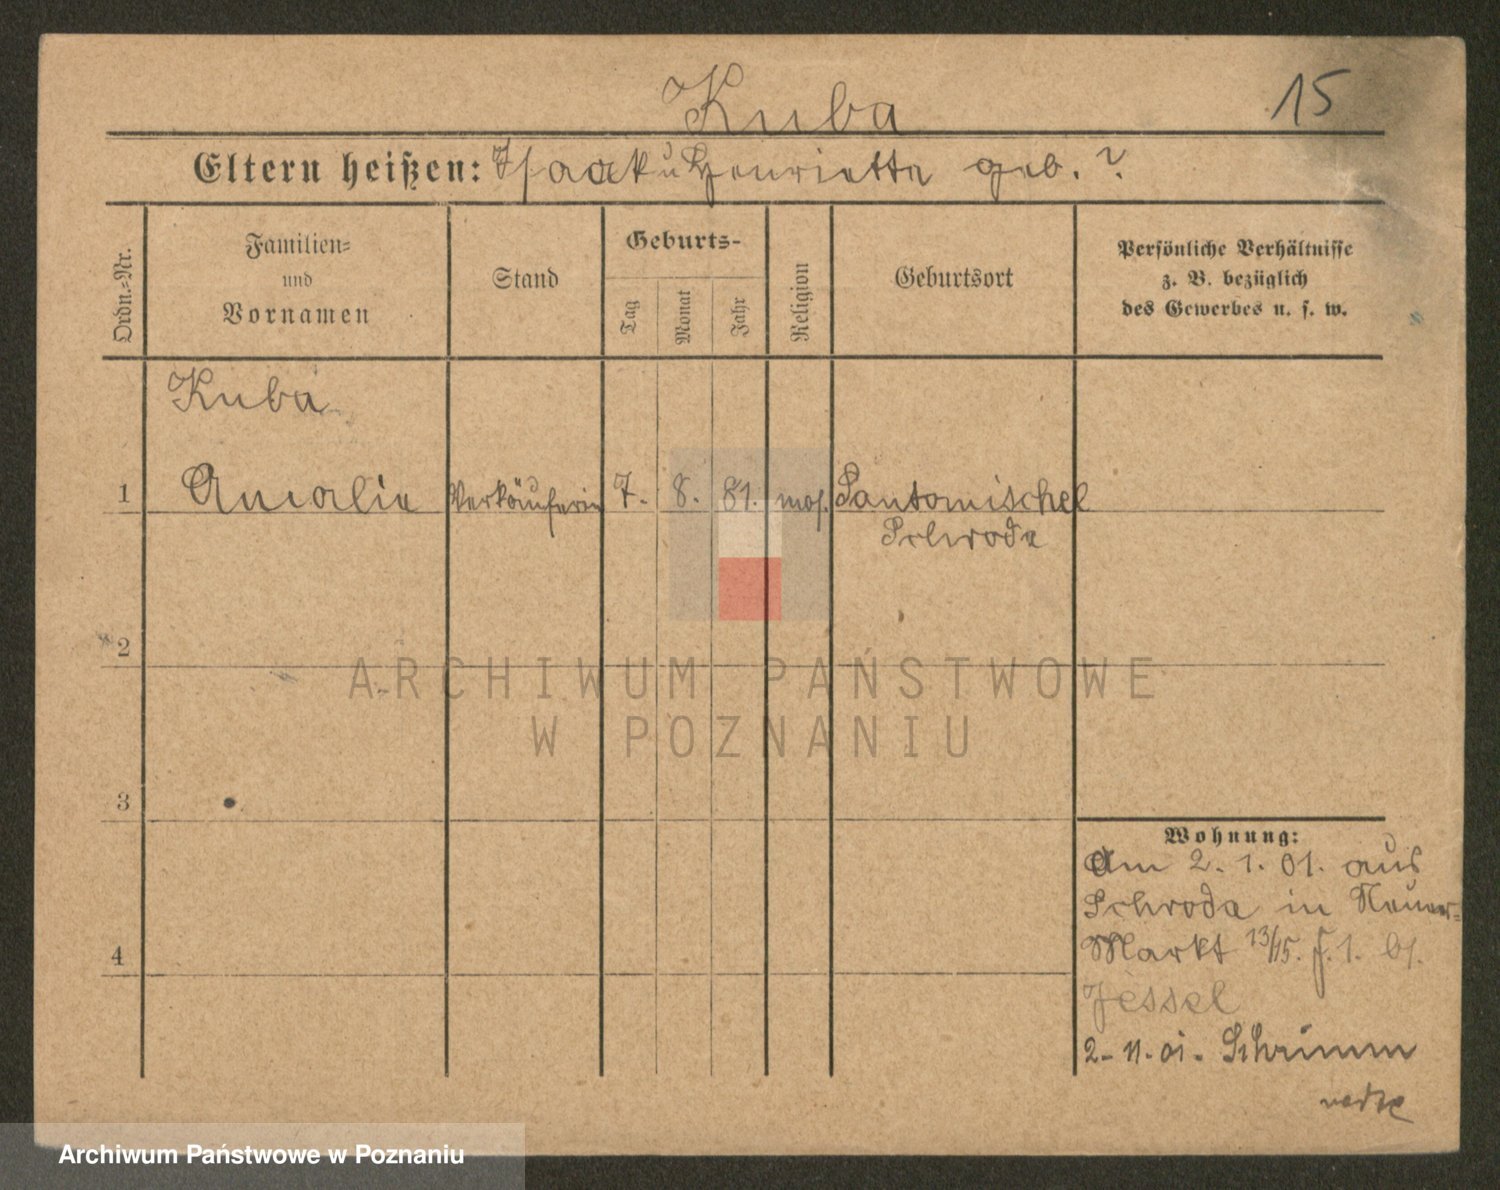 15
Kuba
Eltern heißen: Isaak u Henrietta geb. ?
Ordn.-Nr.
Familien-
und
Vornamen
Stand
Geburts-
Tag
Monat
Jahr
Religion
Geburtsort
Persönliche Verhältnisse
z. B. bezüglich
des Gewerbes u. s. w.
Kuba
1 Amalie Verkäuferin 7. 8. 81. mos. Santomischel
Schroda
2
ARCHIWUM PAŃSTWOWE
W POZNANIU
3
Wohnung:
Am 2. 1. 01. aus
Schroda in Neuer-
4
Markt 13/15. 1. b/.
Jessel
2-11-01. Schrimm
Archiwum Państwowe w Poznaniu